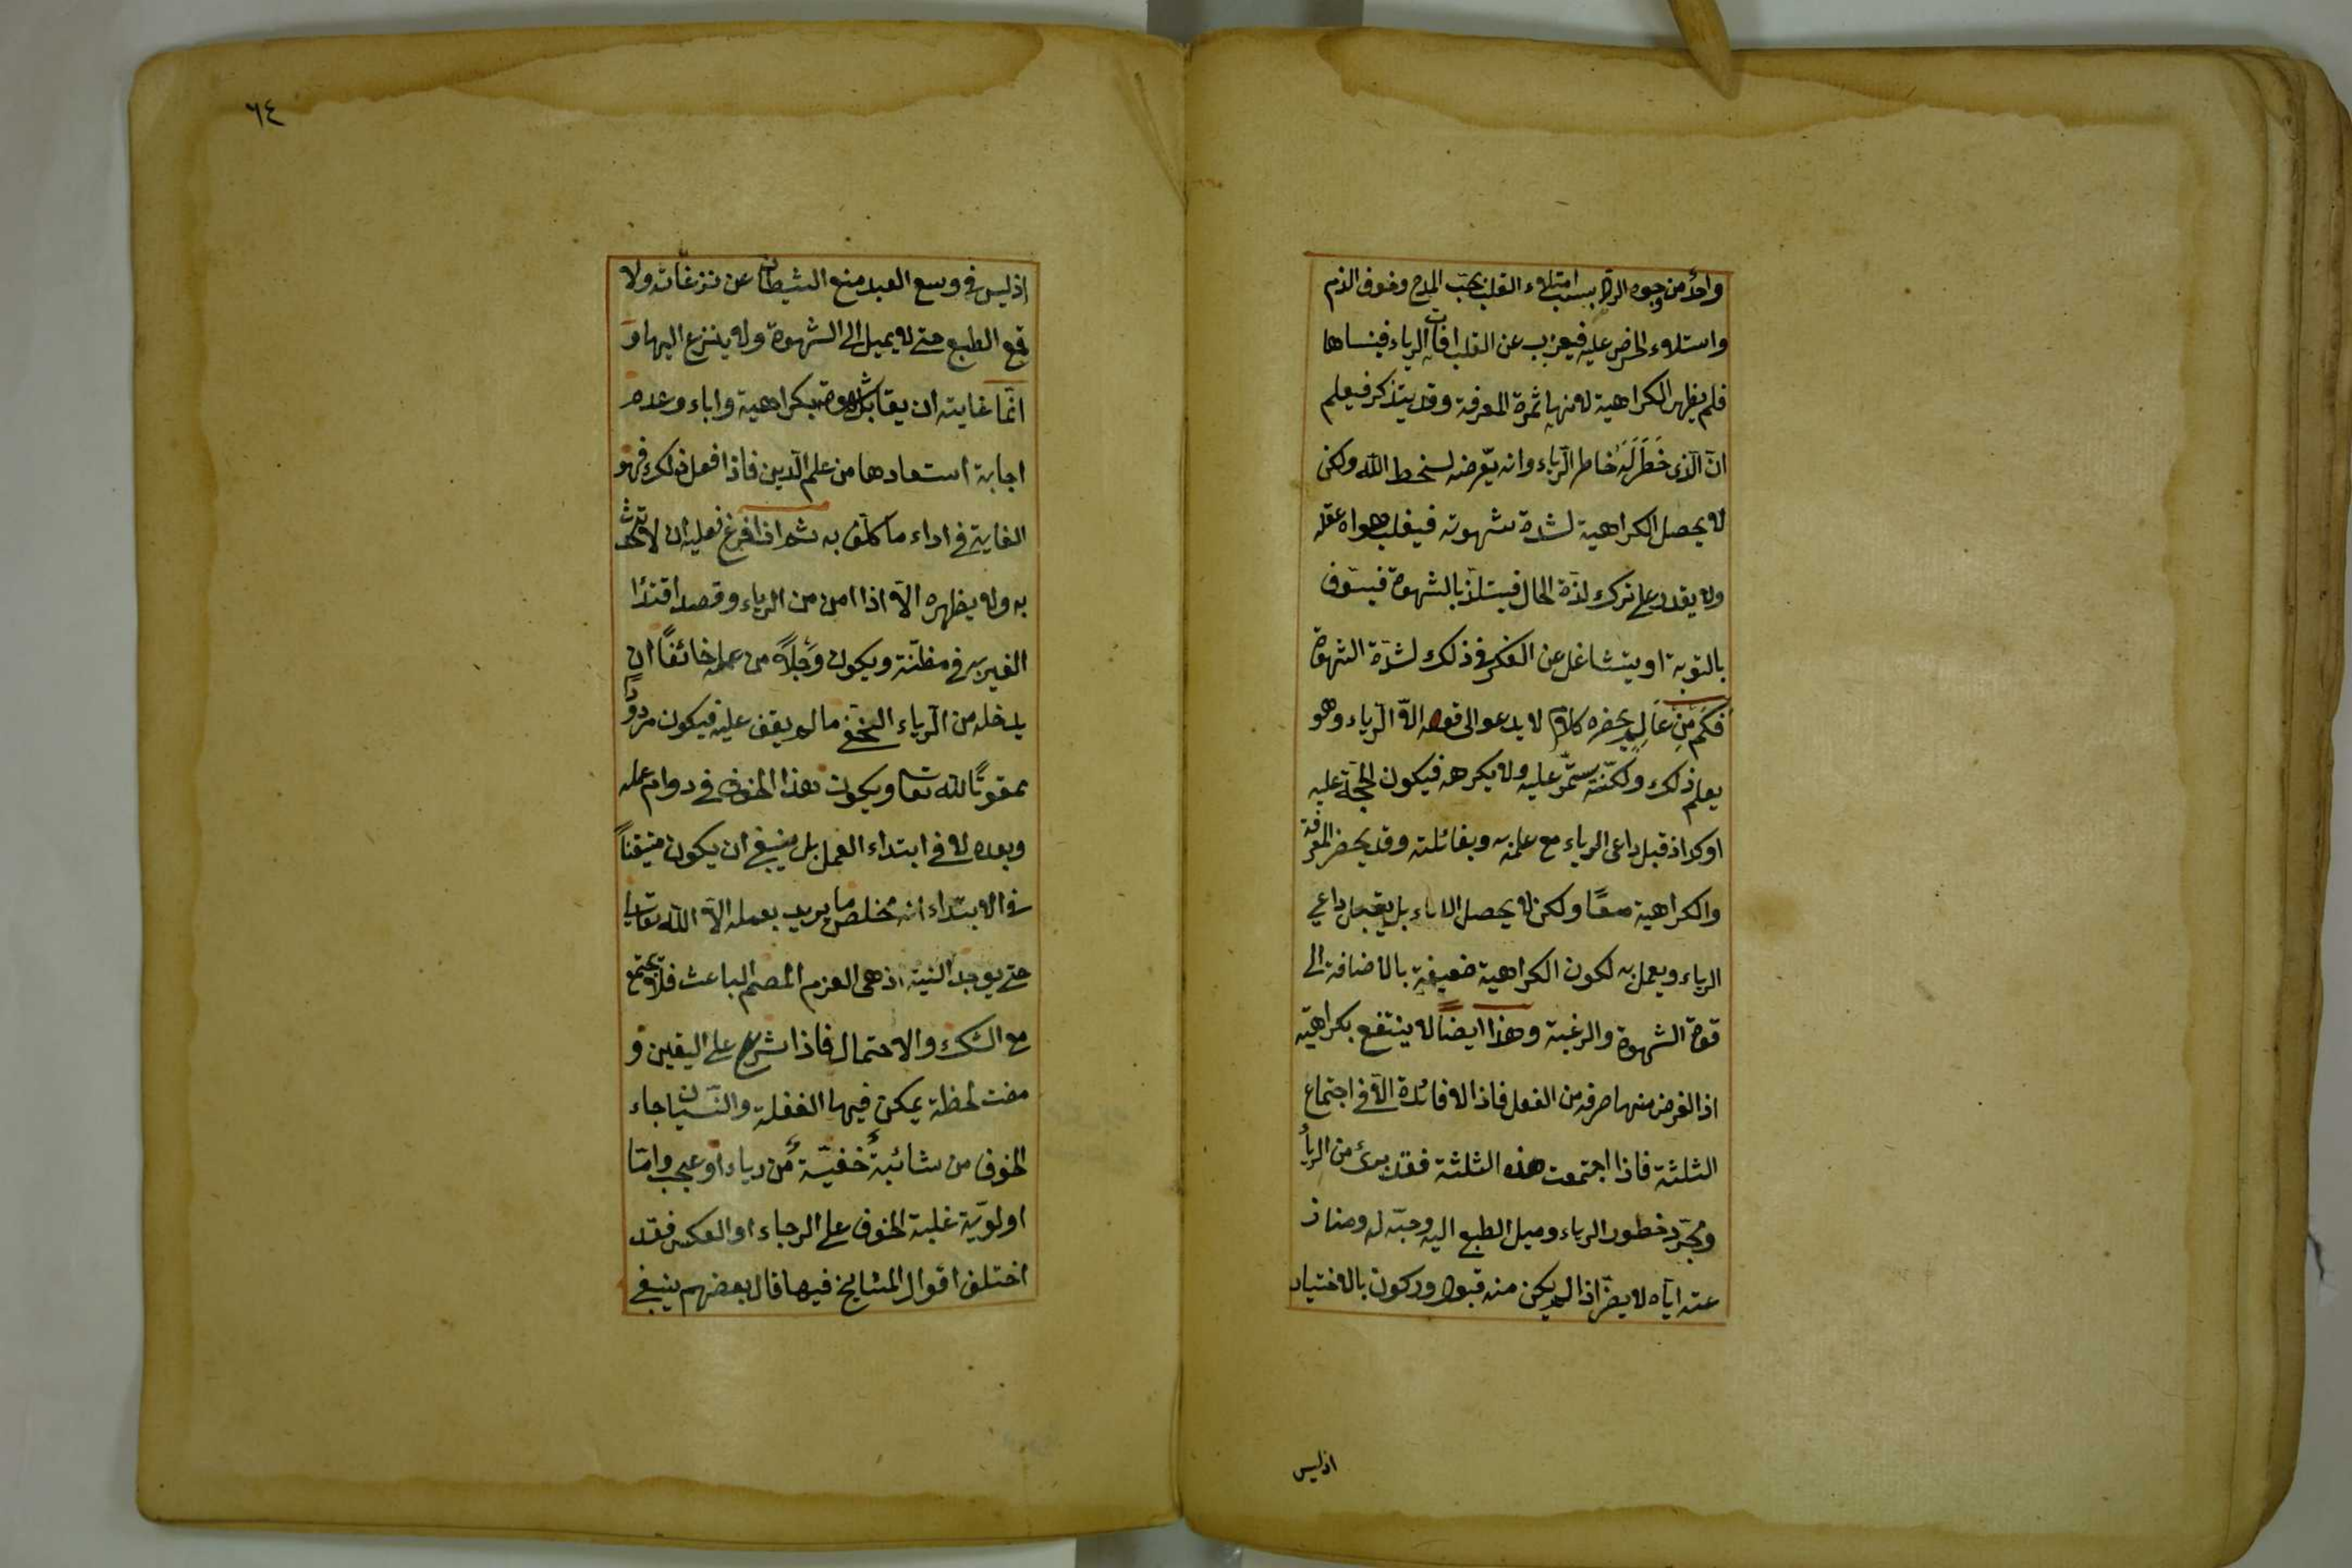 واحد من وجوه الرد بسبب امتلاء القلب بحب المدح وخوف الذم
واستلاء الحرص عليه فيعزب عن القلب افات الرياء فينساها
فلم يظهر الكراهية لانها ثمرة المعرفة وقد يتذكر فيعلم
انّ الّذى خَطَرَ لَهُ خاطر الرّياء وانه يعّرضه لسخط الله ولكن
لا يحصل الكراهية لشدة شهوته فيغلب هواه عقله
ولا يقدر على ترك لذّة الحال فيستلذّ بالشهوة فيسّوف
بالتوبة او يتشاغل عن الفكر فى ذلك لشدّة الشهوة
فكم مِن عَالِمٍ يحضره كلام لا يدعو الى قوله الاّ الرّياء وهو
يعلم ذلك ولكنّه يستمّر عليه ولا يكرهه فيكون الحجّة عليه
اوكد اذ قبل داعى الرياء مع علمه به وبغائلته وقد يحضر المعرفة
والكراهية معًا ولكن لا يحصل الاباء بل يقبل داعي
الرياء ويعمل به لكون الكراهية ضعيفة بالاضافة الى
قوة الشهوة والرغبة وهذا ايضًا لا ينتفع بكراهيته
اذ الغرض منها صرفه من الفعل فاذا لا فائدة الّا فى اجتماع
الثلثة فاذا اجتمعت هذه الثلثة فقد برئ من الرياء
ومجّرد خطور الرياء وميل الطبع اليه وحبّه له ومناز
عته ايّاه لا يضرّ اذا لم يكن منه قبول وركون بالاختيار
اذليس
٦٤
اذليس فى وسع العبد منع الشيطان عن نزغاته ولا
قمع الطبع حتى لا يميل الى الشهوة ولا ينزع اليها و
انّما غايته ان يقابل شهوته بكراهية واباء وعدم
اجابة استعادها من علم الّدين فاذا فعل ذلك فهو
الغاية فى اداء ما كلّف به ثم اذا فرغ فعليه ان لا يتحدث
به ولا يظهره الّا اذا امن من الرياء وقصد اقتداء
الغير به فى مظنّة ويكون وَجِلاً من عمله خائفًا ان
يدخله من الرّياء الخفى ما لم يقف عليه فيكون مردودًا
ممقوتًا لله تعا ويكون هذا الخوف فى دوام عمله
وبعده لا فى ابتداء العمل بل ينبغى ان يكون متيقنًا
فى الابتداء انه مخلص ما يريد بعمله الّا الله تعالى
حتى يوجد النية اذ هى العزم المصمم الباعث فلا يجتمع
مع الشك والاحتمال فاذا شرع على اليقين و
مضت لحظة يمكن فيها الغفلة والنسيان جاء
الخوف من شائبة خفيّة من رياء او عجب وامّا
اولويّة غلبة الخوف على الرجاء او العكس فقد
اختلف اقوال المشايخ فيها قال بعضهم ينبغى